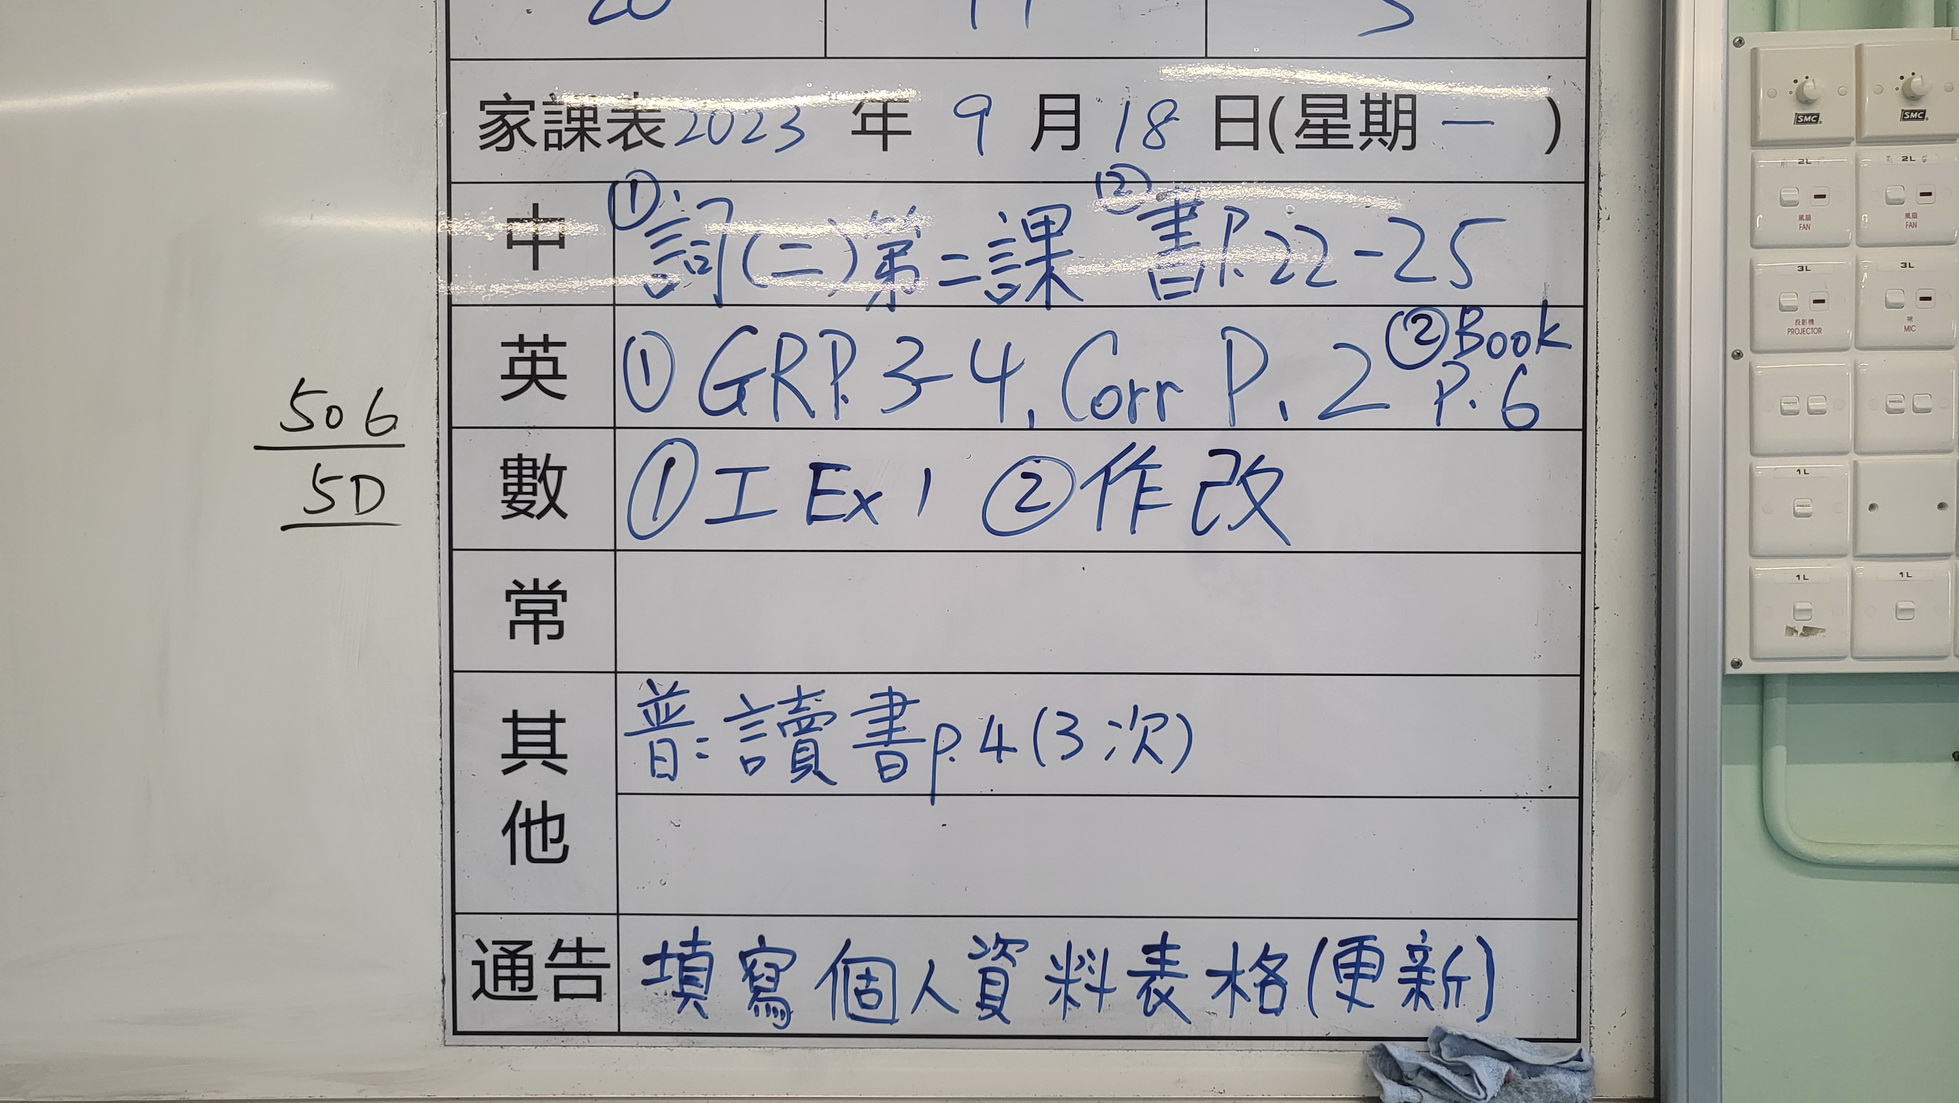 家課表 2023 年 9 月 18 日(星期一)
中 ①詞(二)第二課 ②書P.22-25
英 ①GRP.3-4, Corr P.2 ②Book P.6
數 ①工Ex1 ②作改
常
其他 普:讀書p.4(3次)
通告 填寫個人資料表格(更新)
506
5D
SMC
SMC
2L
2L
風扇
FAN
風扇
FAN
3L
3L
投影機
PROJECTOR
MIC
1L
1L
1L